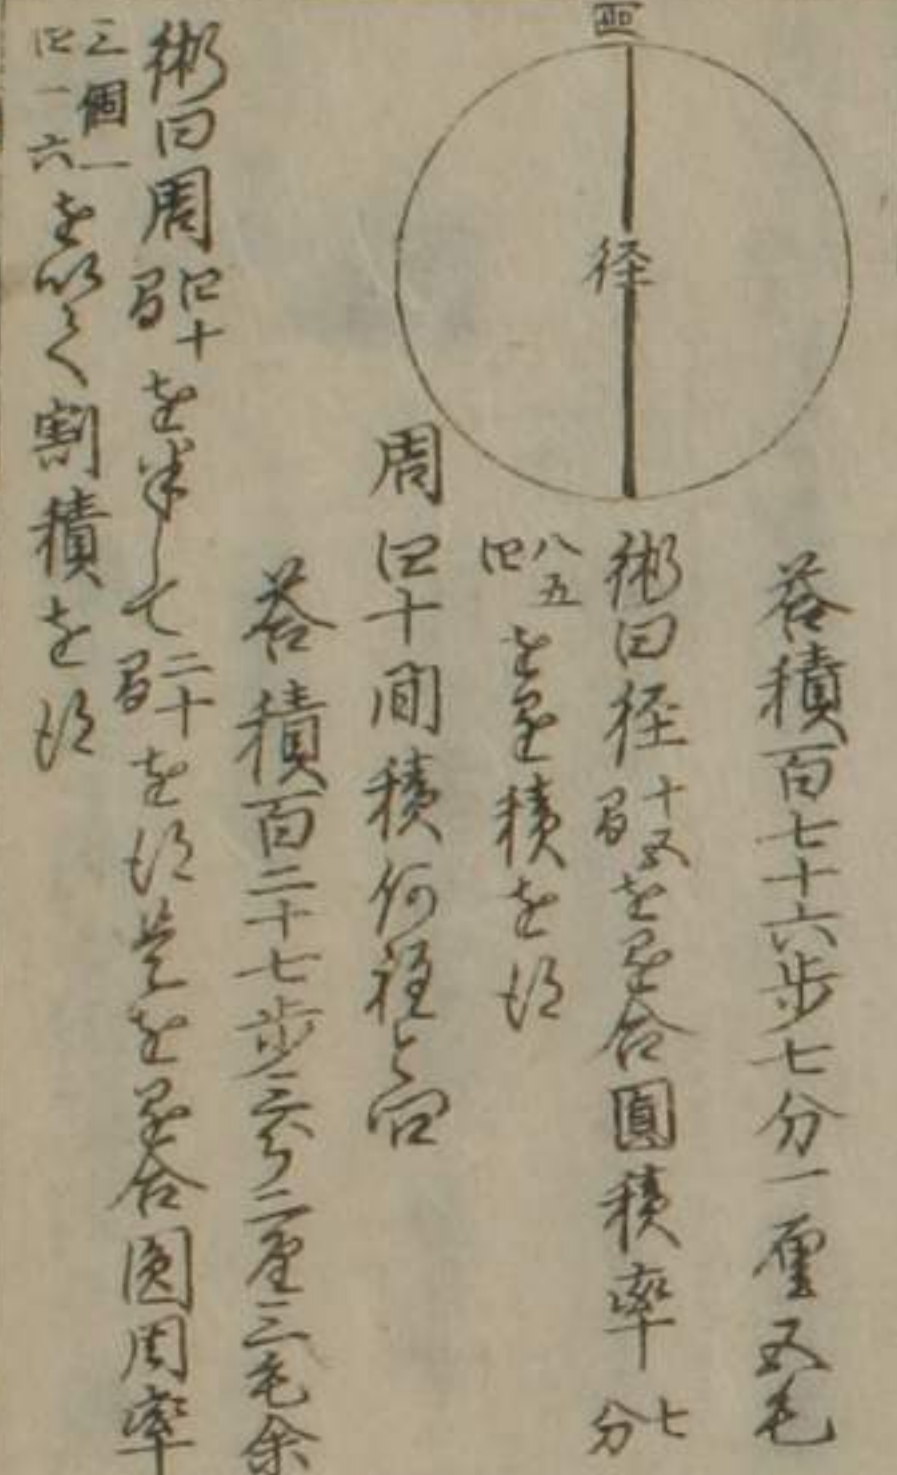 径
答積百七十六歩七分一厘五毛
術曰径十五間を量合圓積率七分
八五四を量積を得
周四十間積何程と問
答積百二十七歩三分二厘三毛余
術曰周四十間を半して二十間を得是を量合圓周率
三個一四一六を以て割積を得